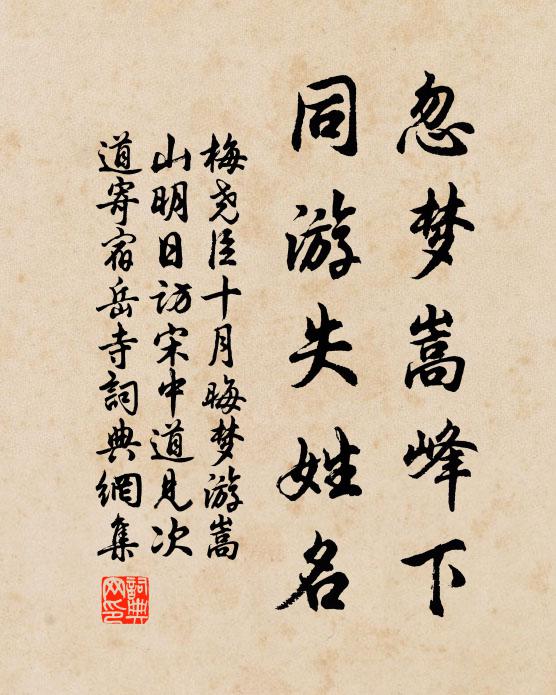 忽梦嵩峰下
同游失姓名
梅尧臣十月晦梦游嵩
山明日访宋中道见次
道寄宿岳寺詞典網集
詞典
网印